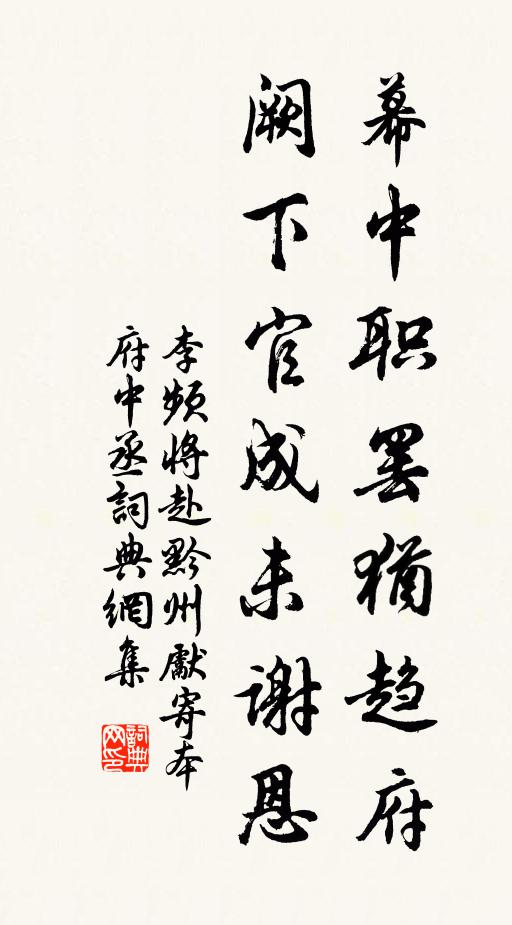 幕中职罢犹趋府
阙下官成未谢恩
李频将赴黔州献寄本
府中丞詞典網集
詞典
网印